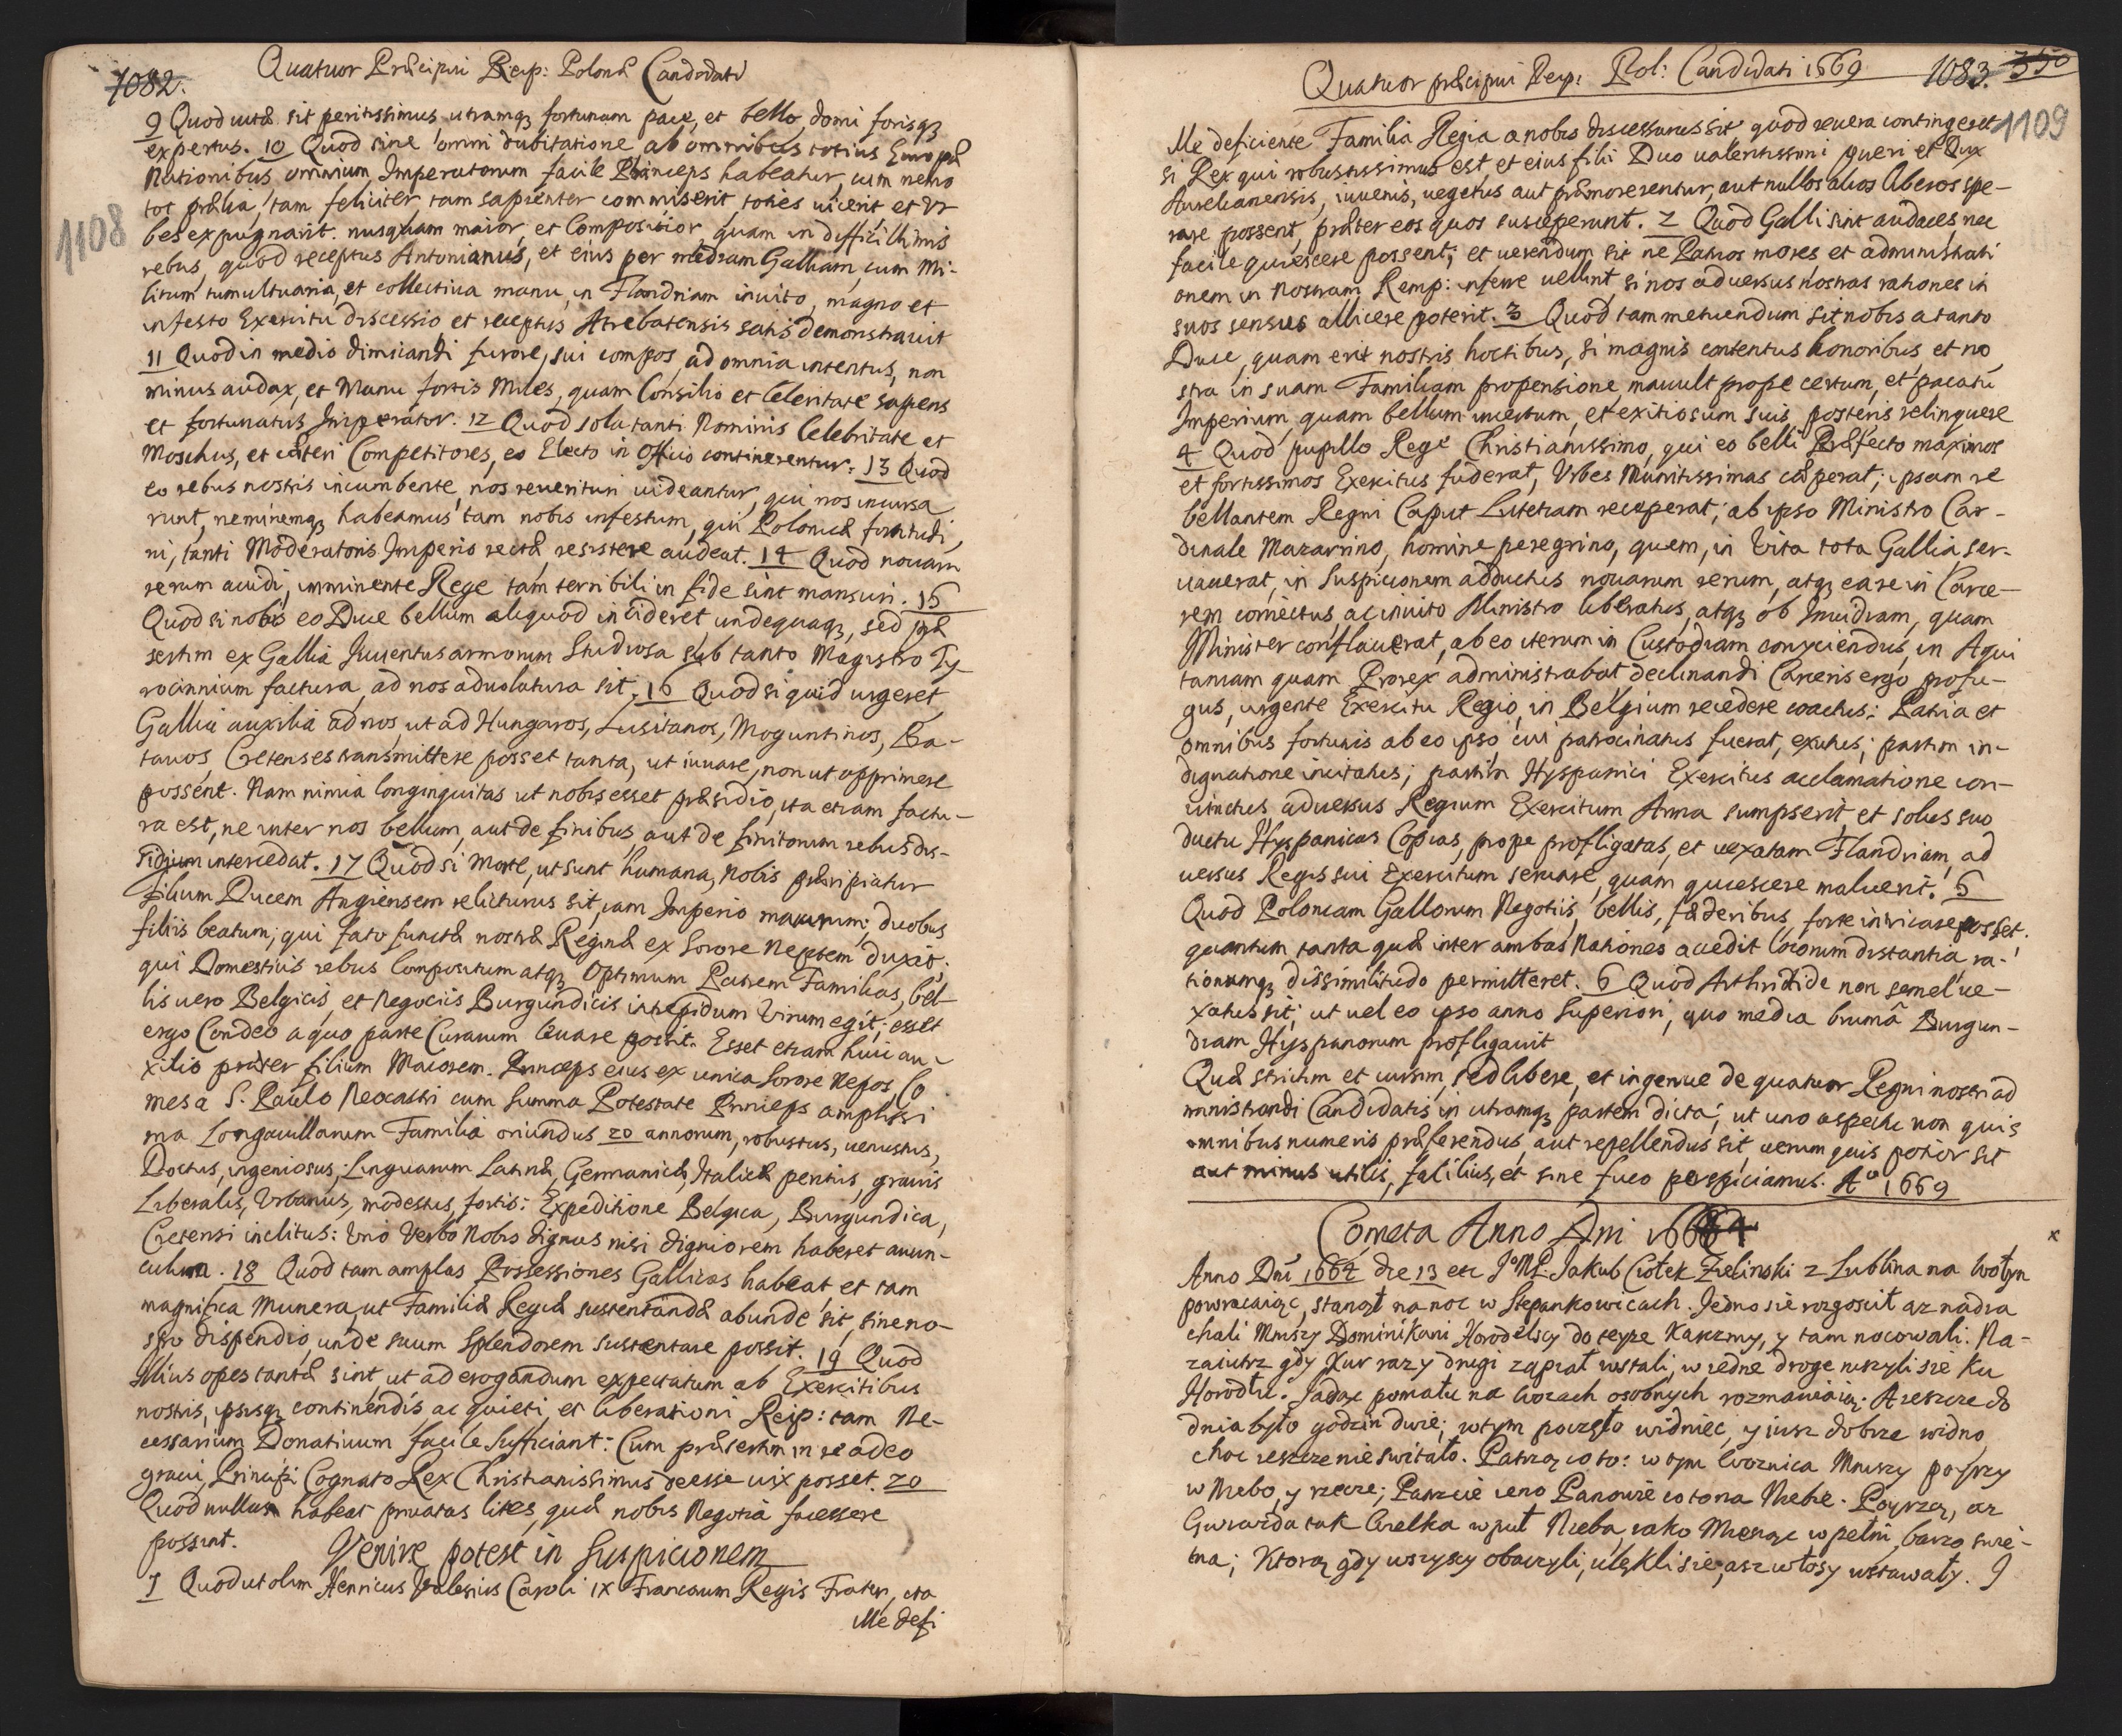 1082.
Quatuor Præcipui Reip: Polonæ Candidati
1108
9 Quod uitæ sit peritissimus utramq; fortunam pace, et bello, domi forisq;
expertus. 10 Quod sine omni dubitatione ab omnibus totius Europæ
Nationibus omnium Imperatorum facile Princeps habeatur, cum nemo
tot prælia, tam feliciter, tam sapienter commiserit, toties uicerit et Vr
bes expugnarit. nusquam maior, et Compositior, quam in difficillimis
rebus, quod receptus Antonianus, et eius per mediam Galliam, cum Mi-
litum tumultuaria, et collectiua manu, in Flandriam inuito, magno et
infesto Exercitu discessio et receptus Atrebatensis satis demonstrauit
11 Quod in medio dimicandi furore, sui compos, ad omnia intentus, non
minus audax, et Manu fortis Miles, quam Consilio et Celeritate sapiens
et fortunatus Imperator. 12 Quod sola tanti Nominis Celebritate et
Moschus, et cæteri Competitores, eo Electo in Officio continerentur. 13 Quod
eo rebus nostris incumbente, nos reuerituri uideantur, qui nos incursa
runt, neminemq; habeamus tam nobis infestum, qui Polonicæ fortitudi,
ni, tanti Moderatoris Imperio rectæ, resistere audeat. 14 Quod nouarum
rerum auidi, imminente Rege tam terribili in fide sint mansuri. 15
Quod si nobis eo Duce bellum aliquod incideret undequaq;, sed præ
sertim ex Gallia Iuuentus armorum Studiosa sub tanto Magistro Ty-
rocinnium factura, ad nos aduolatura sit. 16 Quod si quid urgeret
Gallia auxilia ad nos, ut ad Hungaros, Lusitanos, Moguntinos, Ba-
tauos, Cretenses transmittere posset tanta, ut iuuare, non ut opprimere
possent. Nam nimia longinquitas ut nobis esset præsidio, ita etiam factu-
ra est, ne inter nos bellum, aut de finibus, aut de finitorum rebus dis-
sidium intercedat. 17 Quod si Morte, ut sunt humana, nobis præripiatur
Filium Ducem Angiensem relicturus sit, iam Imperio maturum; duobus
filiis beatum; qui fato functæ nostræ Reginæ ex Sorore Neptem duxit;
qui Domesticis rebus Compositum atq; Optimum Patrem Familias, bel-
lis uero Belgicis, et Negociis Burgundicis intrepidum Virum egit; esset
ergo Condeo a quo parte Curarum leuare possit. Esset etiam huic au-
xilio præter filium Maiorem. Princeps eius ex unica Sorore Nepos Co
mes a S. Paulo Neocastri cum Summa Potestate Princeps amplissi
ma Longauillanum Familia oriundus 20 annorum, robustus, uenustus,
Doctus, ingeniosus, Linguarum Latinæ, Germanicæ, Italicæ peritus, grauis
Liberalis, Vrbanus, modestus, fortis: Expeditione Belgica, Burgundica,
Cretensi inclitus: Uno Verbo Nobis dignus nisi digniorem haberet auun-
culum. 18 Quod tam amplas Possessiones Gallicas habeat, et tam
magnifica Munera, ut Familiæ Regiæ sustentandæ abunde sit, sine no-
stro dispendio, unde suum Splendorem sustentare possit. 19 Quod
Illius opes tantæ sint, ut ad erogandum expectatum ab Exercitibus
nostris, ipsisq; continendis, ac quieti, et liberationi Reip: tam Ne-
cessarium Donatiuum facile Sufficiant: Cum præsertim in re adeo
graui, Principi Cognato Rex Christianissimus deesse uix posset. 20
Quod nullas habeat priuatas lites, quæ nobis Negotia facessere
possint.
Venire potest in Suspicionem
1 Quod ut olim Henricus Valesius Caroli IX Francorum Regis Frater, ita
ille defi
Quatuor præcipui Reip: Pol: Candidati 1669
1083. 350
1109
Ille deficiente Familia Regia a nobis discessurus sit quod reuera contingeret
si Rex qui robustissimus est, et eius filii Duo ualentissimi pueri et Dux
Aurelianensis, iuuenis, uegetus aut præmorerentur, aut nullos alios liberos spe-
rare possent, præter eos quos susceperunt. 2 Quod Galli sint audaces, nec
facile quiescere possent; et uerendum sit ne Patrios mores et administrati
onem in Nostram Remp: inferre uellint, si nos aduersus nostras rationes in
suos sensus allicere poterit. 3 Quod tam metuendum sit nobis a tanto
Duce, quam erit nostris hostibus, si magnis contentus honoribus et no
stra in suam Familiam propensione, mauult prope certum, et pacatu
Imperium, quam bellum incertum, et exitiosum suis posteris relinquere
4 Quod pupillo Rege Christianissimo, qui eo belli Præfecto maximos
et fortissimos Exercitus fuderat, Vrbes Munitissimas cæperat; ipsam re
bellantem Regni Caput Lutetiam receperat; ab ipso Ministro Car-
dinale Mazarrino, homine peregrino, quem, in Vita tota Gallia ser-
uauerat, in Suspicionem adductus nouarum rerum, atq; ea re in Carce-
rem coniectus, ac inuito Ministro liberatus, atq; ob Inuidiam, quam
Minister conflauerat, ab eo iterum in Custodiam conyciendus, in Aqui
taniam quam Prorex administrabat declinandi Carceris ergo profu-
gus, urgente Exercitu Regio, in Belgium recedere coactus: Patria et
omnibus fortunis ab eo ipso cui patrocinatus fuerat, exutus; partim in-
dignatione incitatus; partim Hyspanici Exercitus acclamatione con-
uinctus, aduersus Regium Exercitum Arma sumpserit, et solus suo
ductu Hyspanicas Copias, prope profligatas, et uexatam Flandriam, ad
uersus Regis sui Exercitum seruare, quam quiescere maluerit. 5
Quod Poloniam Gallorum Negotiis, bellis, fæderibus forte intricare posset;
quantum tanta quæ inter ambas Nationes accedit Locorum distantia, ra-
tionumq; dissimilitudo permitteret. 6 Quod Arthritide non semel ue-
xatus sit; ut uel eo ipso anno Superiori, quo media brumâ Burgun-
diam Hyspanorum profligauit
Quæ strictim et cursim, sed libere, et ingenue de quatuor Regni nostri ad
ministrandi Candidatis in utramq; partem dicta; ut uno aspectu non quis
omnibus numeris præferendus, aut repellendus sit, uerum quis potior sit
aut minus utilis, facilius, et sine fuco perspiciamus. Aº 1669
Cometa Anno Dni 1664
x
Anno Dni 1664 die 13 etc JoMP Jakub Ciołek Zielinski z Lublina na Wołyn
powracaiąc, stanął na noc w Stepankowicach. Jedno sie rozgoscił az nadia
chali Mniszy Dominikani Horodelscy do teyze Karczmy, y tam nocowali. Na-
zaiutrz gdy Kur raz y drugi zapiał wstali, w iedne droge ruszyli sie ku
Horodłu. Jadąc pomału na wozach osobnych rozmawiaią. A ieszcze do
dnia było godzin dwie; wtym poczęło widniec, y iusz dobrze widno,
choc ieszcze nie switało. Patrzą co to: w tym Woznica Mniszy poyzry
w Niebo, y rzecze; Patrzcie ieno Panowie co to na Niebie. Poyrzą, az
Gwiazda tak Wielka w puł Nieba, iako Miesiąc w pełni, barzo swie-
tna; Ktorą gdy wszyscy obaczyli, ulękli sie, asz włosy wstawały. J